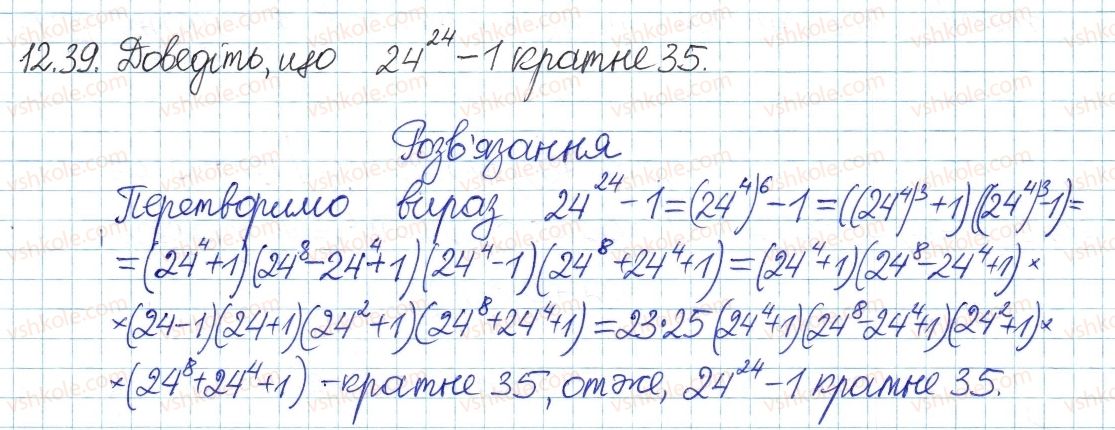 12.39. Доведіть, що 24^24 − 1 кратне 35.
Розв'язання
Перетворимо вираз 24^24 − 1 = (24^4)^6 − 1 = ((24^4)^3 + 1)((24^4)^3 − 1) =
= (24^4 + 1)(24^8 − 24^4 + 1)(24^4 − 1)(24^8 + 24^4 + 1) = (24^4 + 1)(24^8 − 24^4 + 1) ×
× (24 − 1)(24 + 1)(24^2 + 1)(24^8 + 24^4 + 1) = 23·25(24^4 + 1)(24^8 − 24^4 + 1)(24^2 + 1) ×
× (24^8 + 24^4 + 1) − кратне 35, отже, 24^24 − 1 кратне 35.